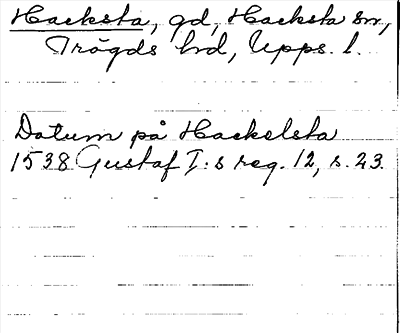 Hacksta, gd, Hacksta sn,
Trögds hd, Upps. l.
Datum på Hackelsta
1538 Gustaf I:s reg. 12, s. 23.